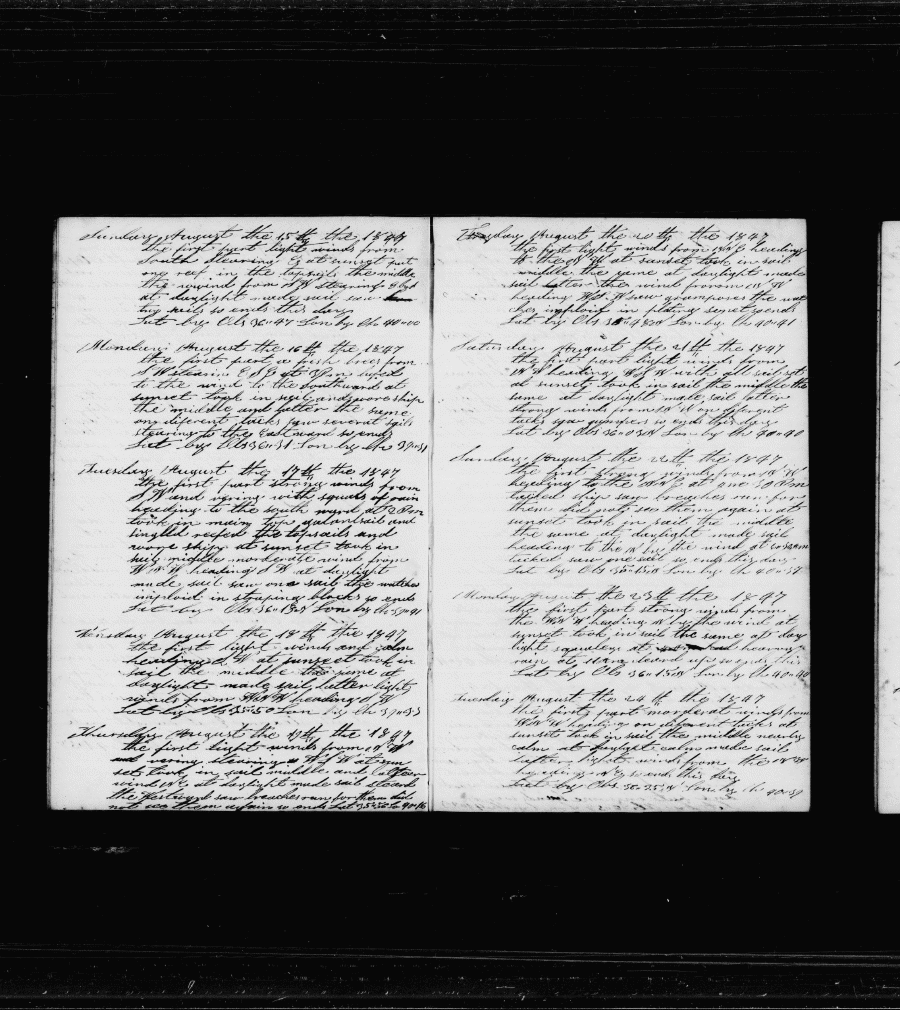 Sunday August the 15th the 1847
the first part light winds from
South stearing E at sunset put
one reef in the topsails the middle
the same wind from S W stearing E by S
at daylight made sail saw
sails so ends this day
Lat by Obs 36"47 Lon by Ch 40"00
Monday August the 16th the 1847
the first part a fresh breeze from
S W stearing E S E at
to the wind to the Southward at
sunset took in sail and wore ship
the middle and latter the same
on diferent tacks saw several sails
stearing to the Eastward so ends
Lat by Obs 36"31 Lon by Ch 39"31
Tuesday August the 17th the 1847
the first part strong winds from
S W and vering with squals of rain
heading to the south ward at 2 Pm
took in main top galantsail and
singled reefed the topsails and
wore ship at sunset took in
sail middle moderate winds from
W N W heading S W at daylight
made sail saw one sail the watches
imploid in straping blocks so ends
Lat by Obs 36" Lon by Ch 39"41
Wensday August the 18th the 1847
the first light winds and calm
heading S W at sunset took in
sail the middle the same at
daylight made sail latter light
winds from heading S W
Lat by Obs 35"50 Lon by Ch 39"33
Thursday August the 19th the 1847
the first light winds from N W
and vering stearing W S W at sun
set took in sail middle and latter
wind N E at daylight made sail steard
the Westward saw breaches ran for them did
not see them again so ends Lat 35"50 Lo 40"16
Friday August the 20th the 1847
the first light winds from N N E heading
to the N W at sunset took in sail
middle the same at daylight made
sail latter the wind from N W
heading W S W saw grampuses the wat
ches imploid in plating senet so ends
Lat by Obs Lon by Ch 40"41
Saturday August the 21th the 1847
the first part light winds from
N W heading W S W with all sail set
at sunset took in sail the middle the
same at daylight made sail latter
strong winds from N W on diferent
tacks saw jumpers so ends this day
Lat by Obs 36"03 Lon by Ch 40"40
Sunday August the 22th the 1847
the first strong winds from N W
heading to the N N E at one Pm
tacked ship saw breaches ran for
them did not see them again at
sunset took in sail the middle
the same at daylight made sail
heading to the N by the wind at 10 am
tacked saw one sail so ends this day
Lat by Obs 36"15 Lon by Ch 40"37
Monday August the 23th the 1847
the first part strong winds from
the W N W heading N by the wind at
sunset took in sail the same at day
light squaley at heavy
rain at 11 am cleard up so ends this
Lat by Obs 36"15 Lon by Ch 40"40
Tuesday August the 24th the 1847
the first part moderate winds from
W N W heading on diferent tacks at
sunset took in sail the middle nearly
calm at daylight calm made sail
latter light winds from the N W
heading so ends this day
Lat by Obs 36"25 Lon by Ch 40"39